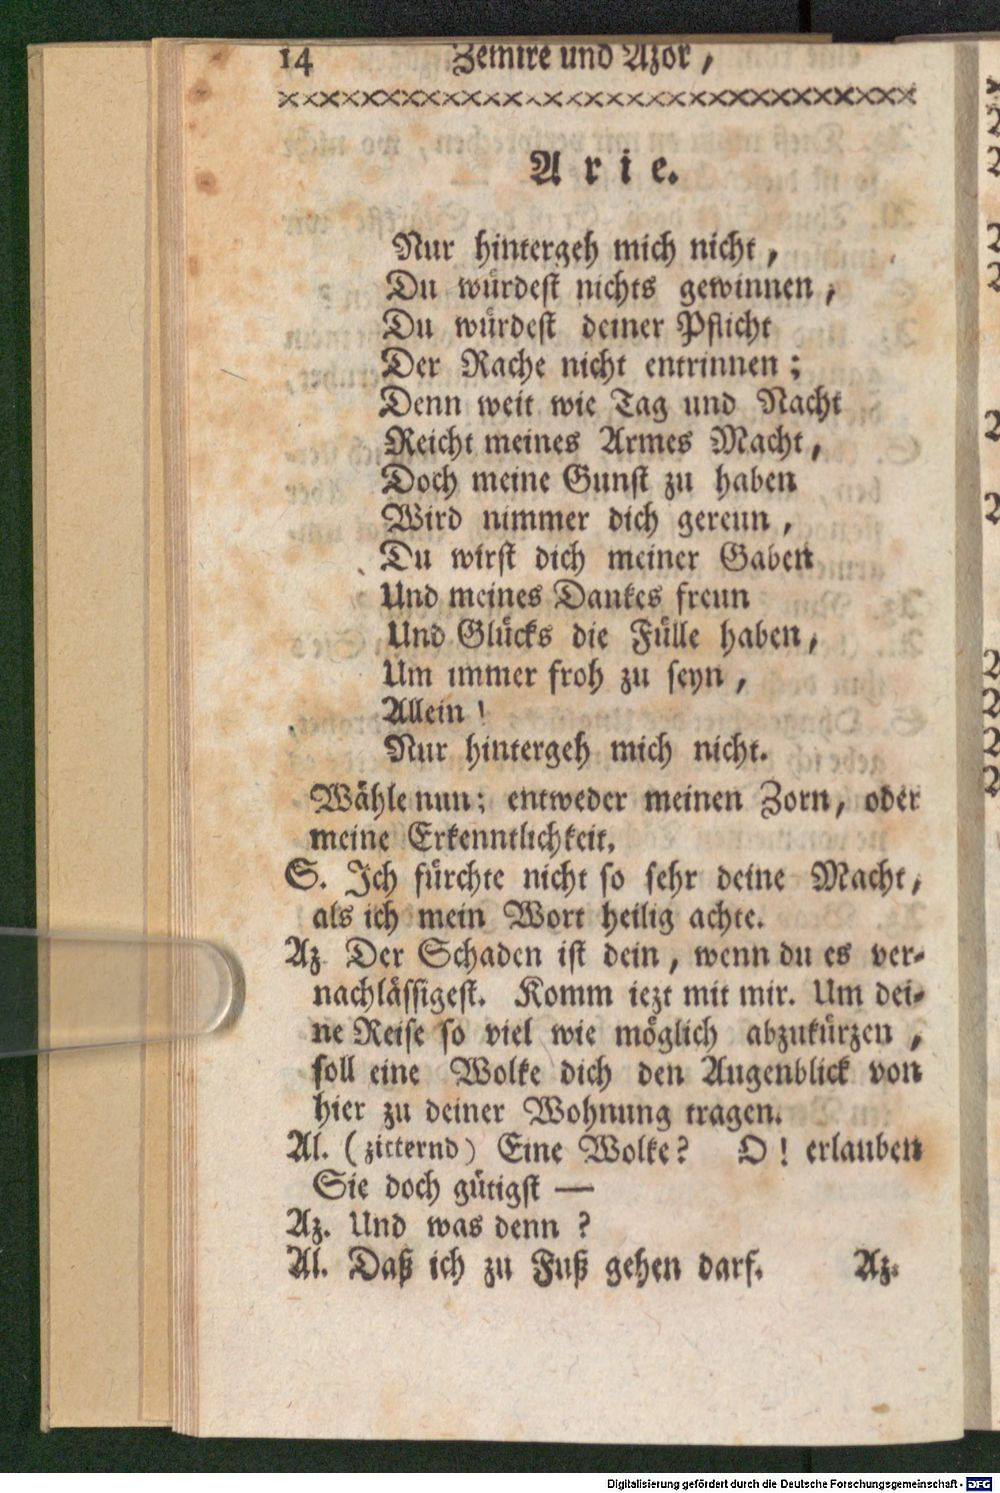 14 Zemire und Azor,
Arie.
Nur hintergeh mich nicht,
Du würdest nichts gewinnen,
Du würdest deiner Pflicht
Der Rache nicht entrinnen;
Denn weit wie Tag und Nacht
Reicht meines Armes Macht,
Doch meine Gunst zu haben
Wird nimmer dich gereun,
Du wirst dich meiner Gaben
Und meines Dankes freun
Und Glücks die Fülle haben,
Um immer froh zu seyn,
Allein!
Nur hintergeh mich nicht.
Wähle nun; entweder meinen Zorn, oder
meine Erkenntlichkeit.
S. Ich fürchte nicht so sehr deine Macht,
als ich mein Wort heilig achte.
Az Der Schaden ist dein, wenn du es ver-
nachlässigest. Komm iezt mit mir. Um dei-
ne Reise so viel wie möglich abzukürzen,
soll eine Wolke dich den Augenblick von
hier zu deiner Wohnung tragen.
Al. (zitternd) Eine Wolke? O! erlauben
Sie doch gütigst —
Az. Und was denn?
Al. Daß ich zu Fuß gehen darf. Az.
Digitalisierung gefördert durch die Deutsche Forschungsgemeinschaft - DFG